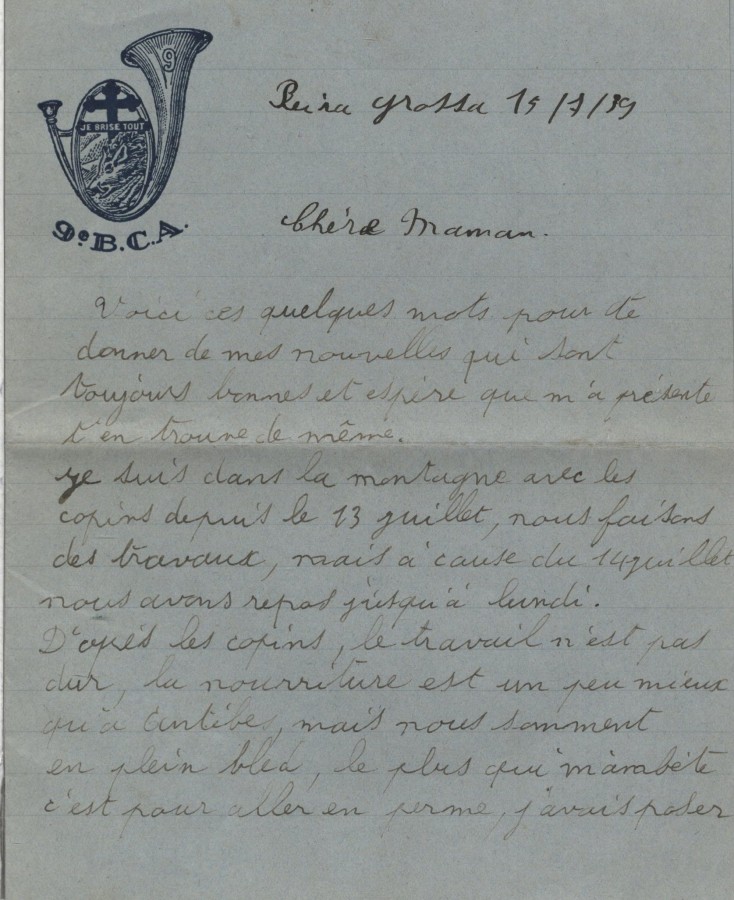 9
JE BRISE TOUT
9e B.C.A.
Peira Grossa 15/7/39
Chère Maman.
Voici ces quelques mots pour te
donner de mes nouvelles qui sont
toujours bonnes et espère que m'a présente
t'en trouve de même.
Je suis dans la montagne avec les
copins depuis le 13 juillet, nous faisons
des travaux, mais à cause du 14 juillet
nous avons repos jusqu'à lundi.
D'après les copins, le travail n'est pas
dur, la nourriture est un peu mieux
qu'a Antibes, mais nous somment
en plein bled, le plus qui m'arabête
c'est pour aller en perme, j'avais poser